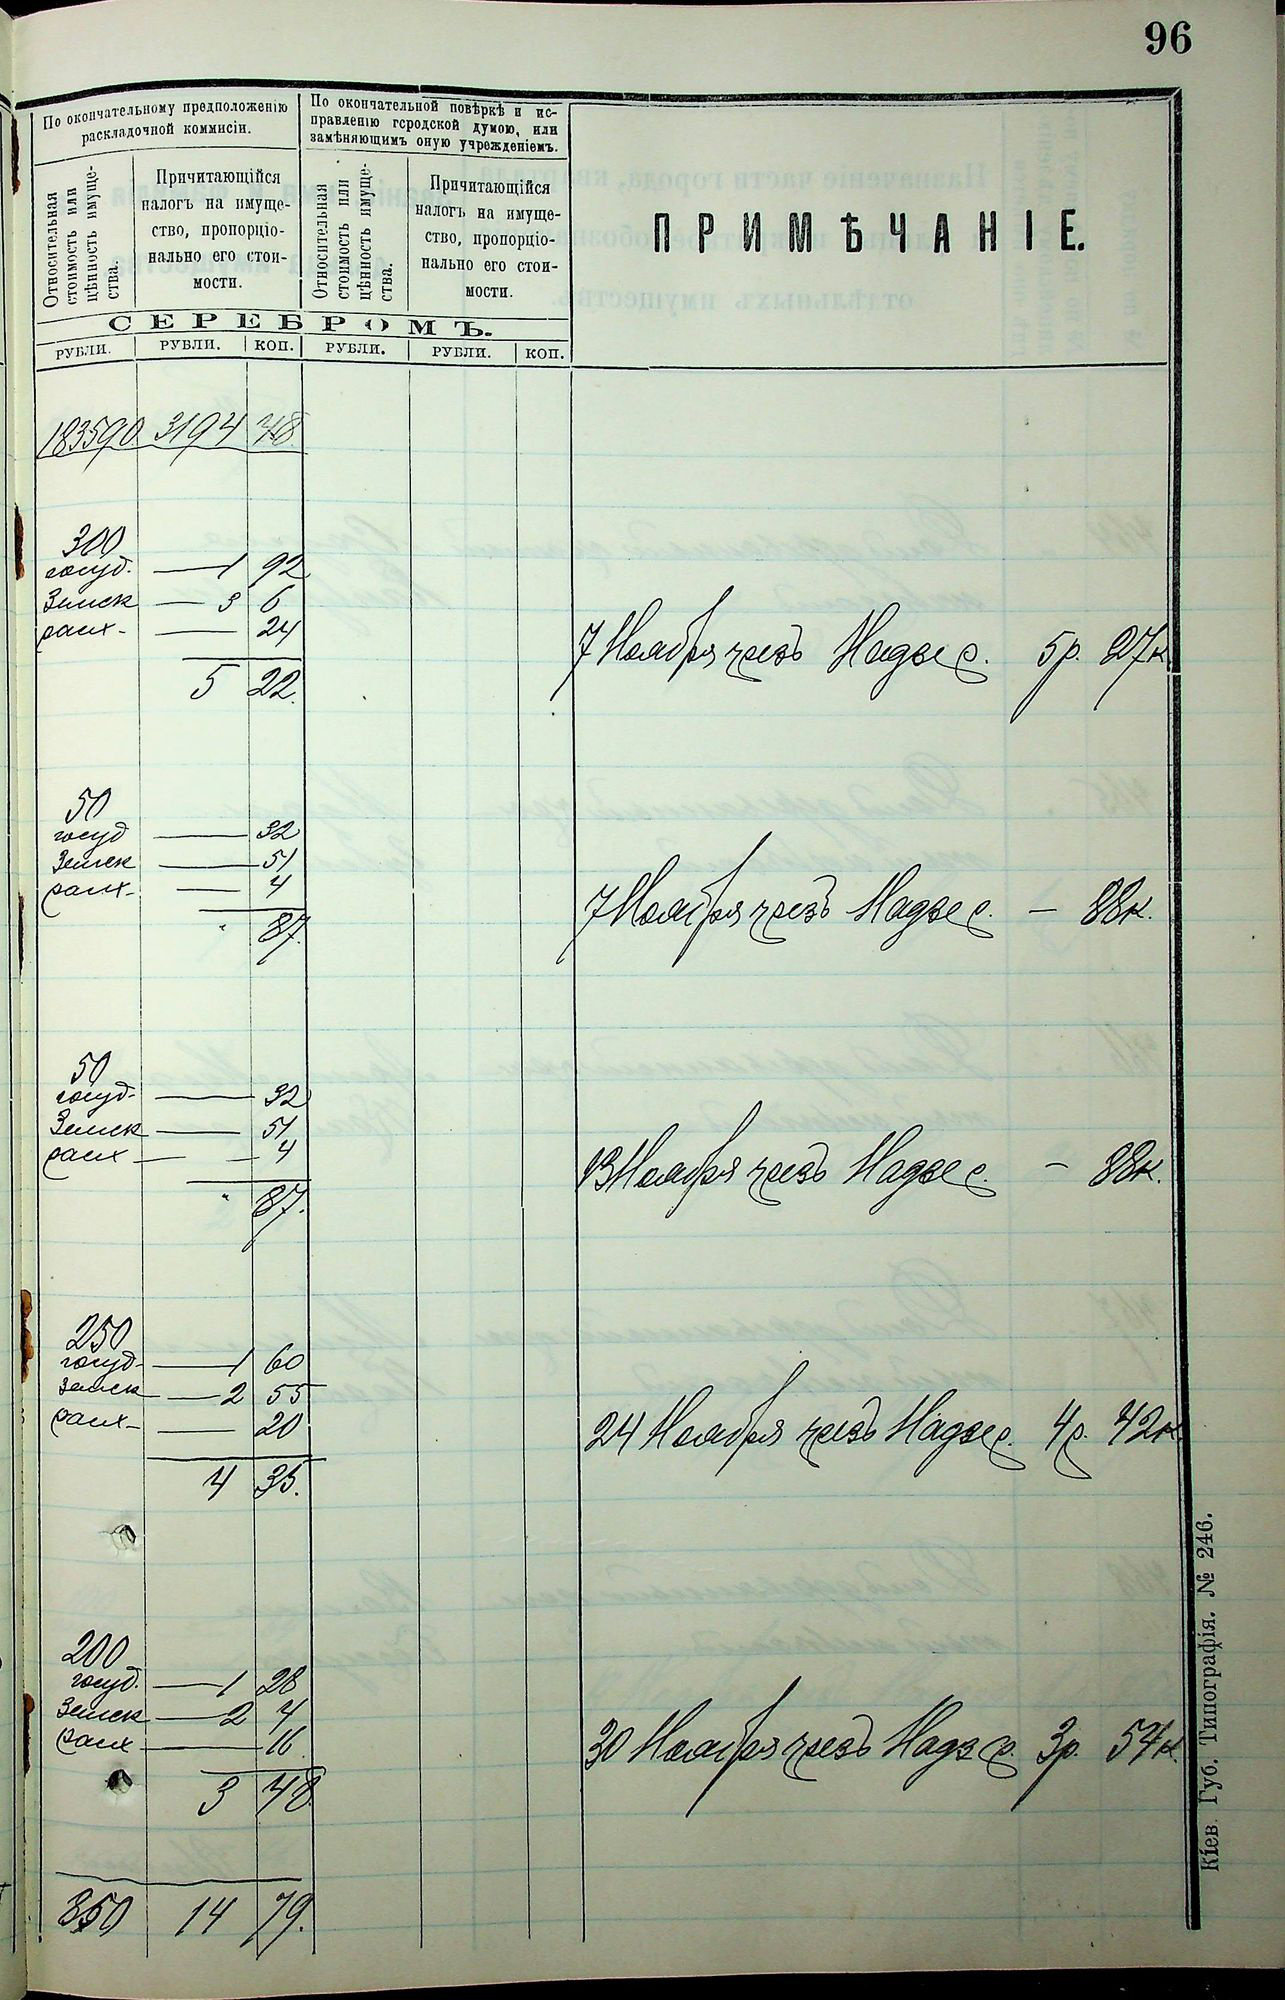 96
По окончательному предположенію
раскладочной коммисіи.
По окончательной повѣркѣ и ис-
правленію городской думою, или
замѣняющимъ оную учрежденіемъ.
Относительная
стоимость или
цѣнность имуще-
ства.
Причитающійся
налогъ на имуще-
ство, пропорціо-
нально его стои-
мости.
Относительная
стоимость или
цѣнность имуще-
ства.
Причитающійся
налогъ на имуще-
ство, пропорціо-
нально его стои-
мости.
ПРИМѢЧАНІЕ.
СЕРЕБРОМЪ.
РУБЛИ. РУБЛИ. КОП. РУБЛИ. РУБЛИ. КОП.
183590 3194 48
300
госуд. — 1 92
Земск — 3 6
раск- — 24
5 22.
7 Ноября чрезъ Надзер. 5р. 27к
50
госуд — 32
Земск — 51
раск- — 4
" 87.
7 Ноября чрезъ Надзер. — 88к.
50
госуд- — 32
Земск — 51
раск — 4
" 87.
13 Ноября чрезъ Надзер. — 88к.
250
госуд- — 1 60
Земск — 2 55
раск- — 20
4 35.
24 Ноября чрезъ Надзер. 4р. 42к
200
госуд. — 1 28
Земск — 2 4
раск — 16
3 48.
30 Ноября чрезъ Надзер. 3р. 54к
850 14 79.
Кіев. Губ. Типографія. № 246.